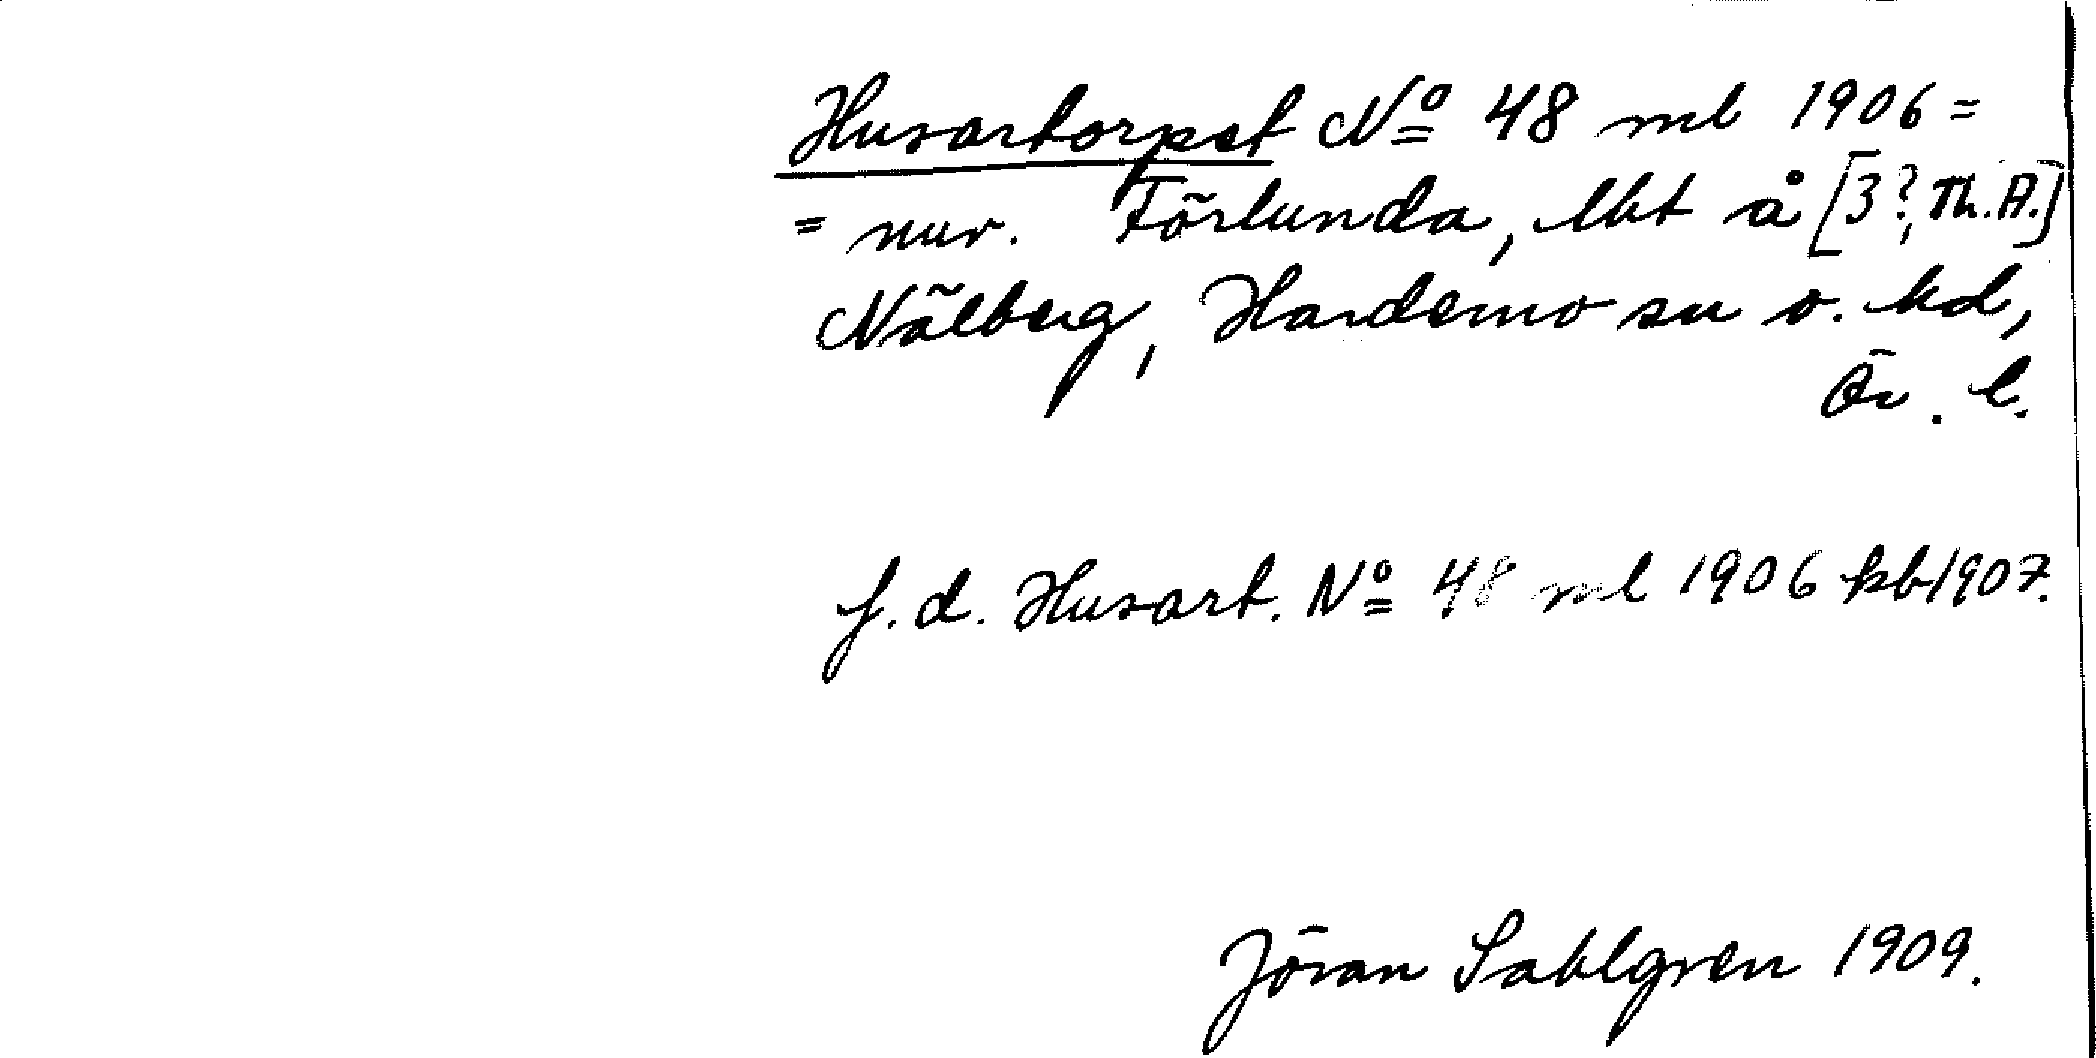 Husartorpet No 48 ml 1906 =
= nuv. Förlunda, lht å [3?, Th. A.]
Nälberg, Hardemo sn o. hd,
Ör. l.
f. d. Husart. No 48 ml 1906 kb 1907.
Jöran Sahlgren 1909.